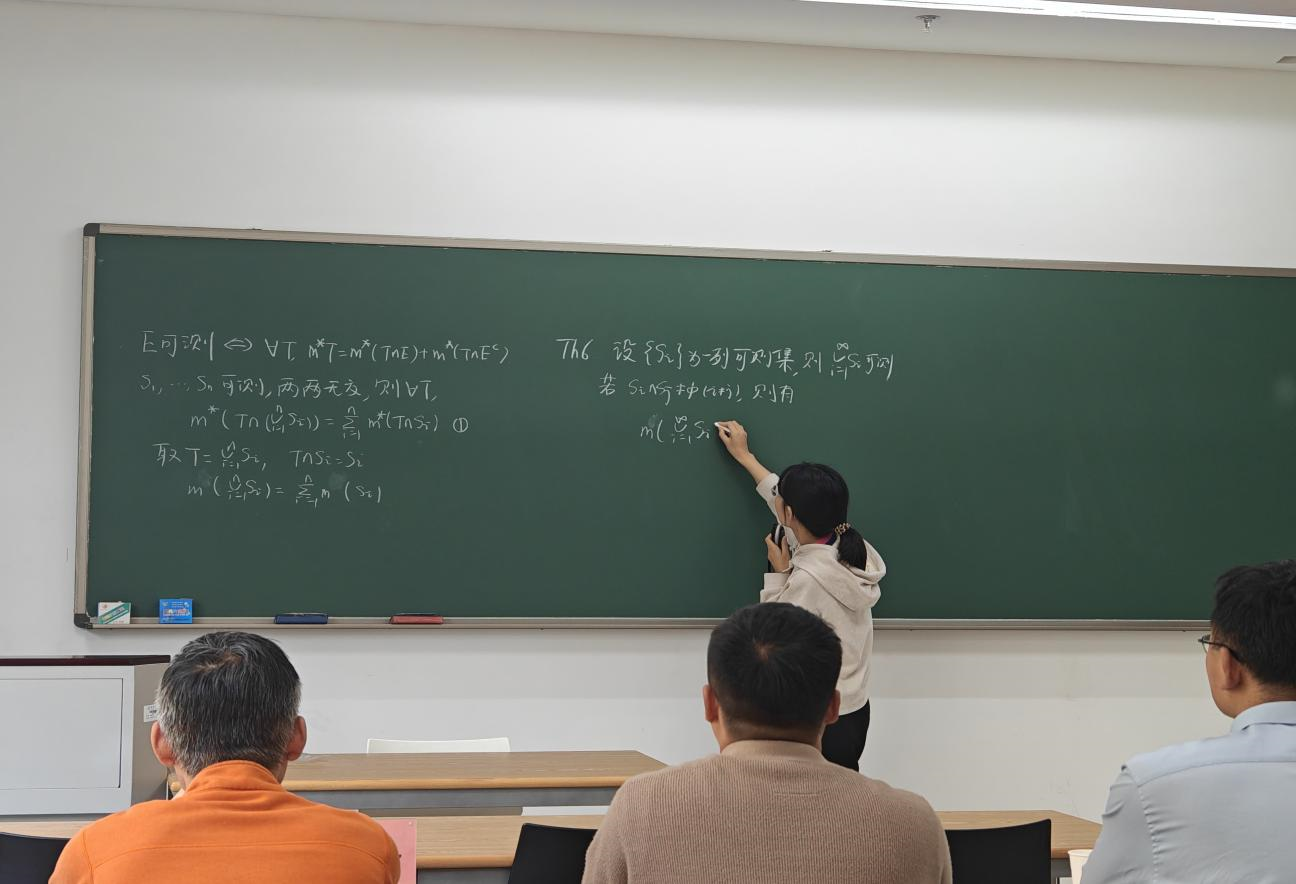 E可测 ⇔ ∀T, m*T=m*(T∩E)+m*(T∩Eᶜ)
S₁, ⋯, Sn 可测, 两两无交, 则∀T,
m*(T∩(⋃ⁿᵢ₌₁Si))=∑ⁿᵢ₌₁ m*(T∩Si) ①
取T=⋃ⁿᵢ₌₁Si, T∩Si=Si
m(⋃ⁿᵢ₌₁Si)=∑ⁿᵢ₌₁m(Si)
Th6 设{Si}为一列可测集, 则⋃^∞ᵢ₌₁Si可测
若 Si∩Sj=φ(i≠j), 则有
m(⋃^∞ᵢ₌₁Si